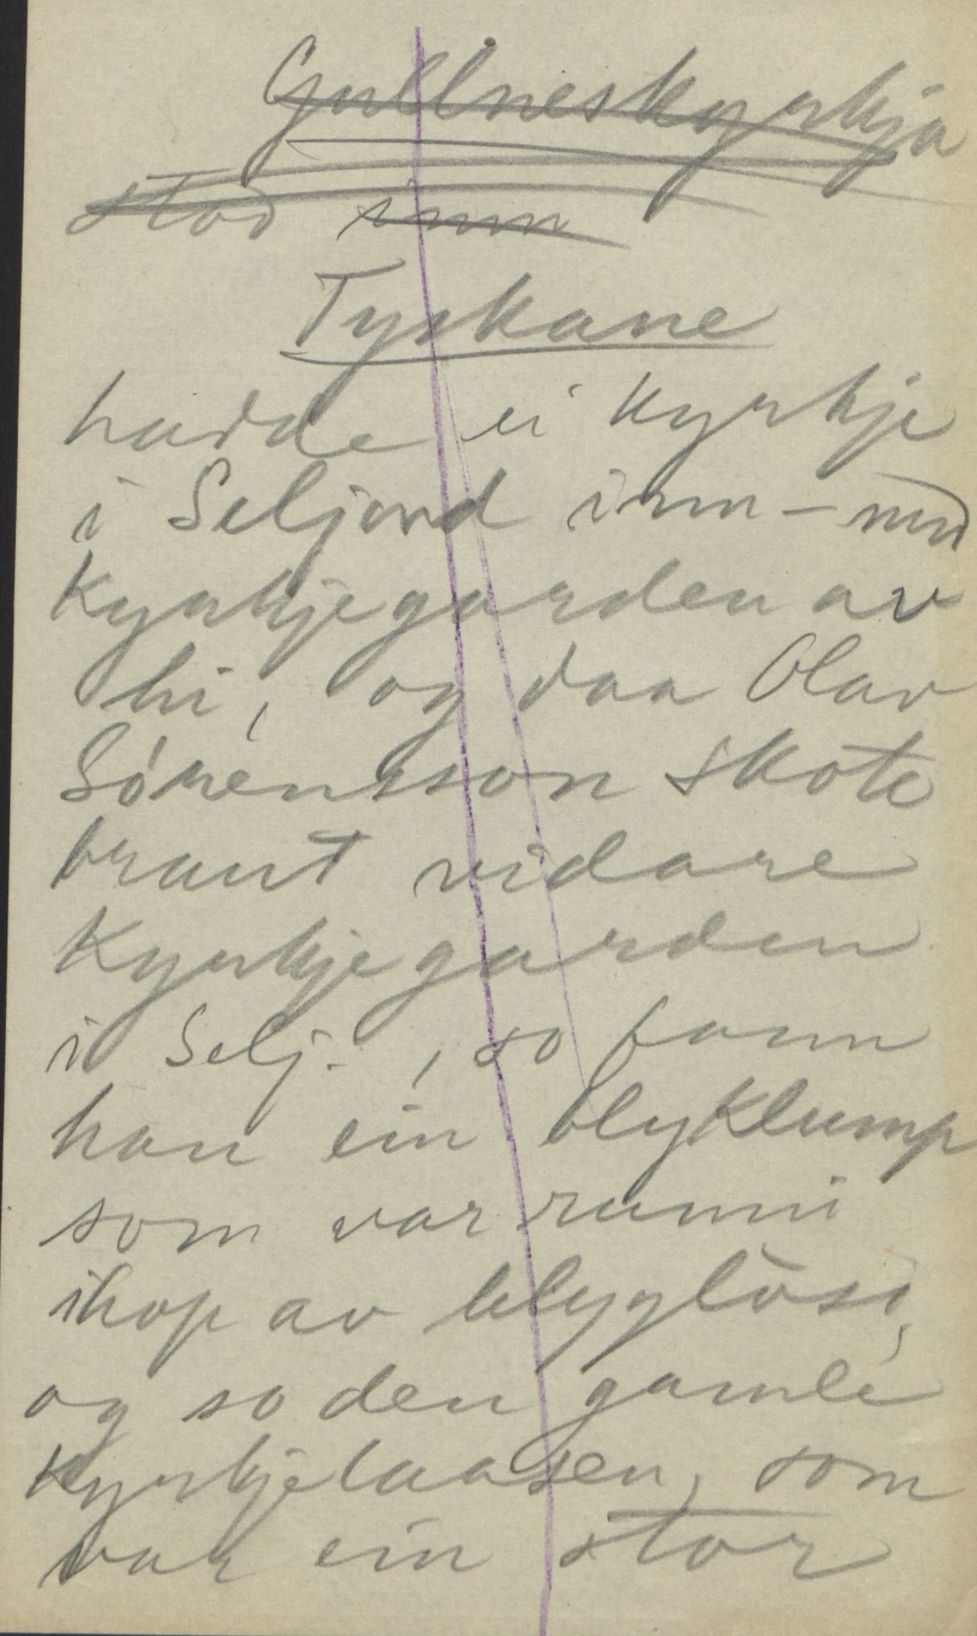 Gullneskyrkja
stod inn
Tyskane
hadde ei kyrkje
i Seljord inn-med
kyrkjegarden av
hi, og daa Olav
Sørensson Skote
braut vidare
kyrkjegarden
i Selj., so fann
han ein blyklump
som var runni
ihop av blyglòsi,
og so den gamle
kyrkjelaasen, som
var ein stor